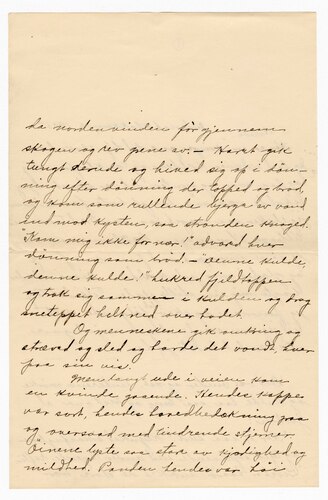 da nordenvinden för gjennem
skogen og rev grene av. — Havet gik
tungt derude og hived sig op i döm-
ning efter dömning der topped og bröd,
og kom som rullende bjerge av vand
ind mod kysten, saa stranden knaged.
"Kom mig ikke for nær!" advared hver
dömning som bröd. — "Denne kulde,
denne kulde!" hukred fjeldtoppen
og trak sig sammen i kulden og drog
sneteppet helt ned over hodet.
Og menneskene gik omkring og
stræved og sled og havde det vondt, hver
paa sin vis.
Men langt ude i veien kom
en kvinde gaaende. Hendes kappe
var sort, hendes hovedbedækning graa
og oversaad med tindrende stjerner.
Öinene lyste saa stor av kjærlighed og
mildhed. Panden hendes var höi